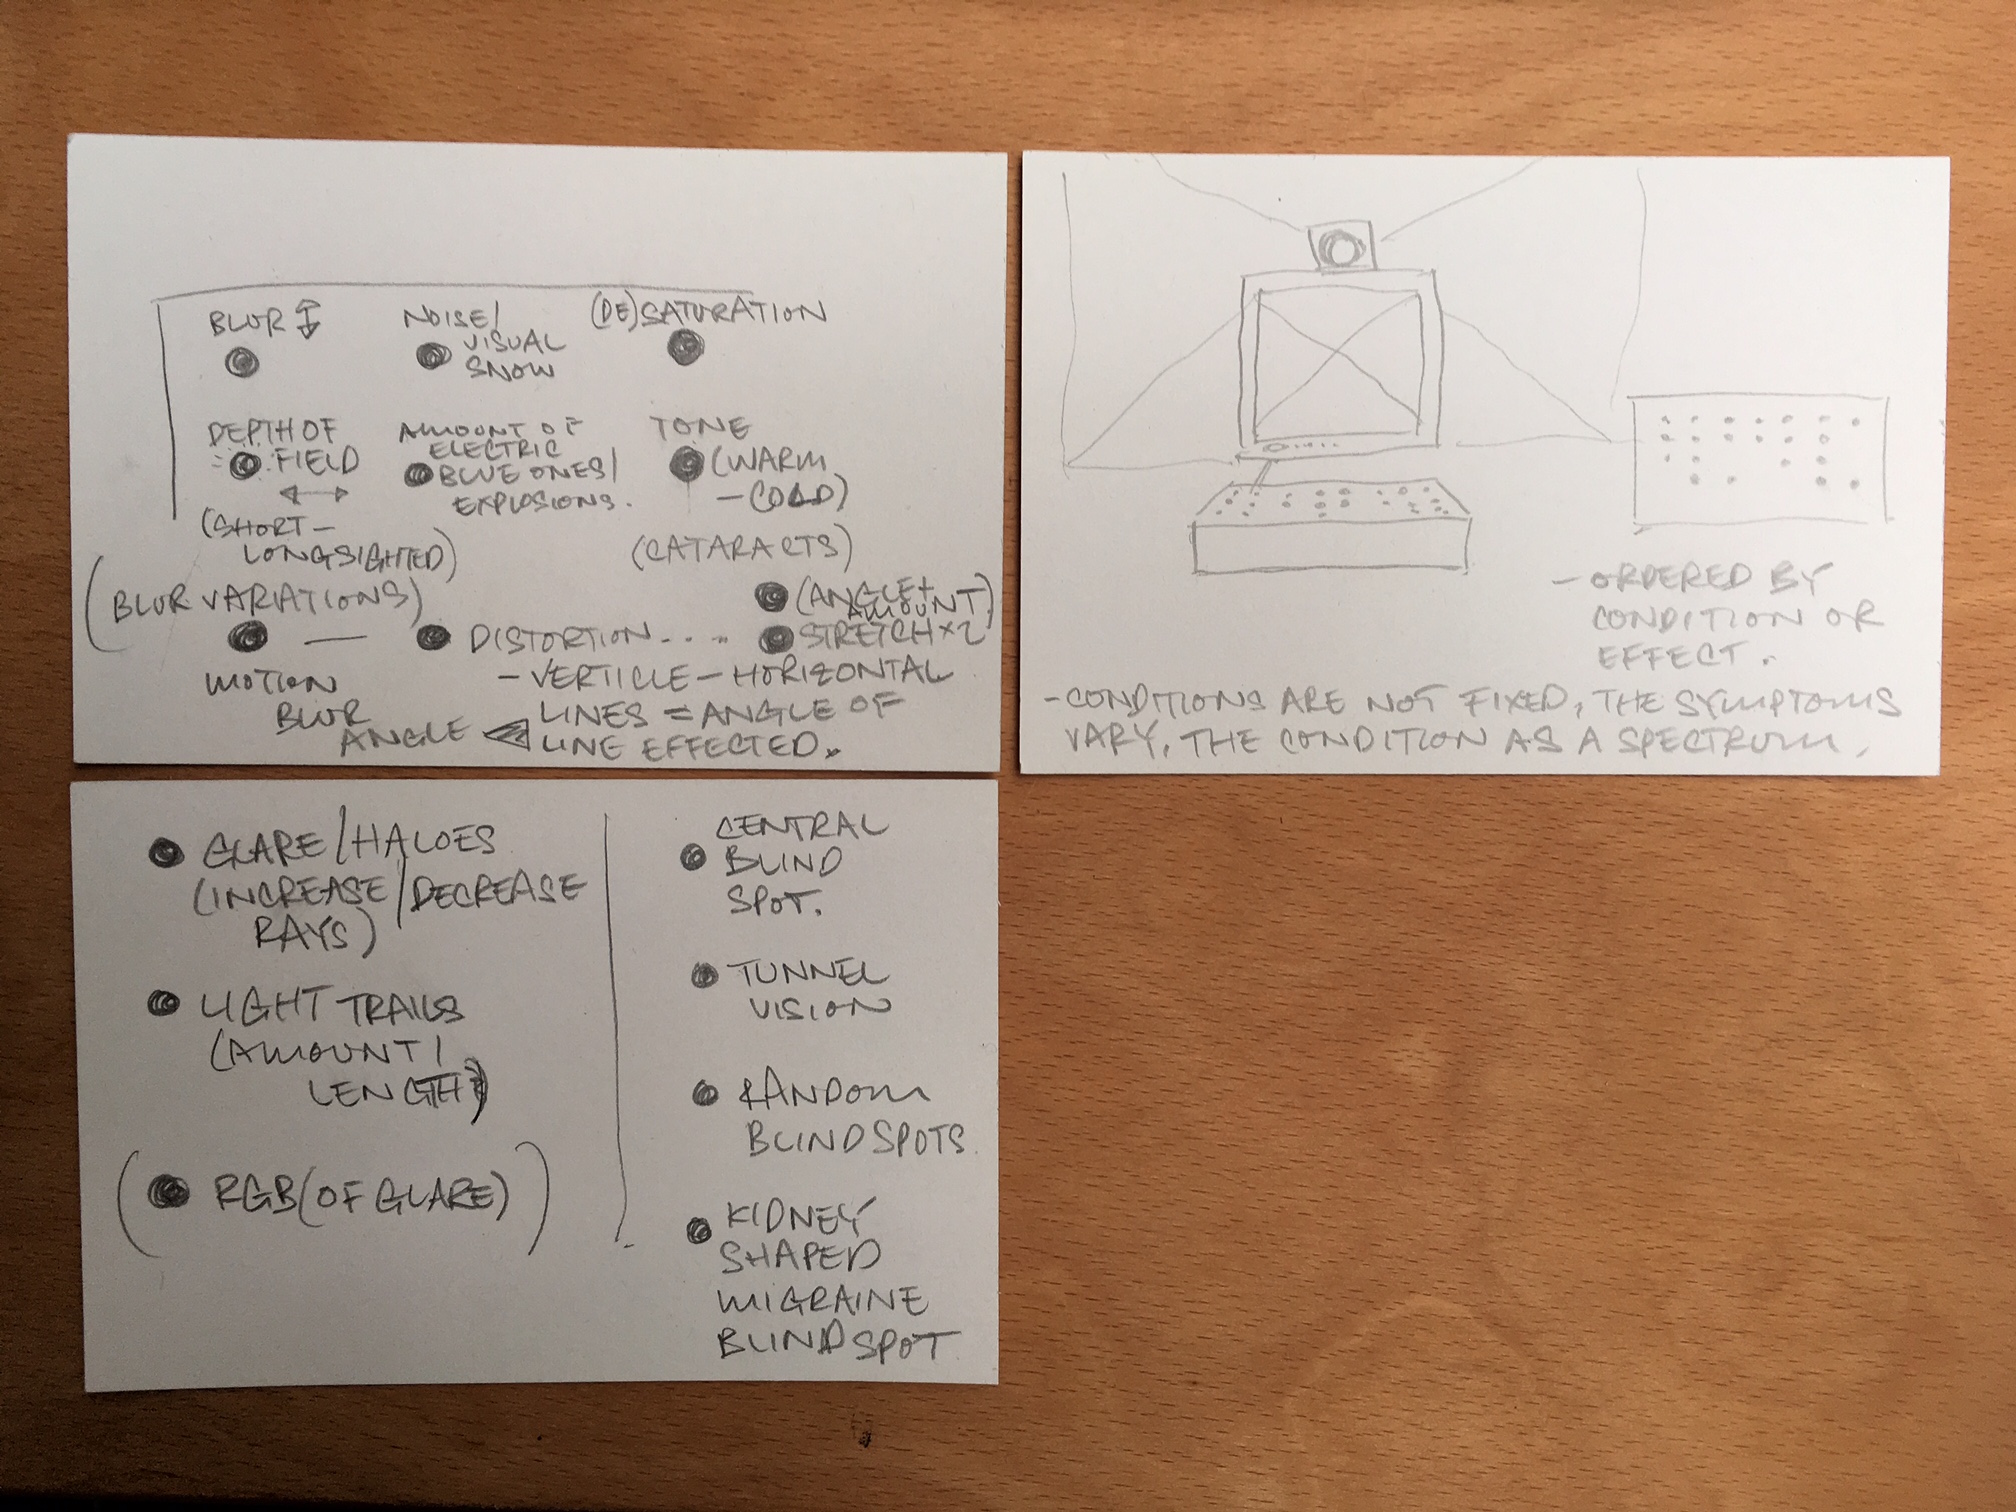 BLUR
NOISE/
VISUAL
SNOW
(DE)SATURATION
DEPTH OF
FIELD
(SHORT-
LONGSIGHTED)
AMOUNT OF
ELECTRIC
BLUE ONES/
EXPLOSIONS.
TONE
(WARM
-COLD)
(CATARACTS)
(BLUR VARIATIONS)
(ANGLE+
AMOUNT)
DISTORTION.... STRETCH×2
MOTION
BLUR
ANGLE
-VERTICLE-HORIZONTAL
LINES = ANGLE OF
LINE EFFECTED.
-ORDERED BY
CONDITION OR
EFFECT.
-CONDITIONS ARE NOT FIXED, THE SYMPTOMS
VARY, THE CONDITION AS A SPECTRUM,
GLARE/HALOES
(INCREASE/DECREASE
RAYS)
LIGHT TRAILS
(AMOUNT/
LENGTH)
(RGB(OF GLARE))
CENTRAL
BLIND
SPOT.
TUNNEL
VISION
RANDOM
BLINDSPOTS
KIDNEY
SHAPED
MIGRAINE
BLINDSPOT